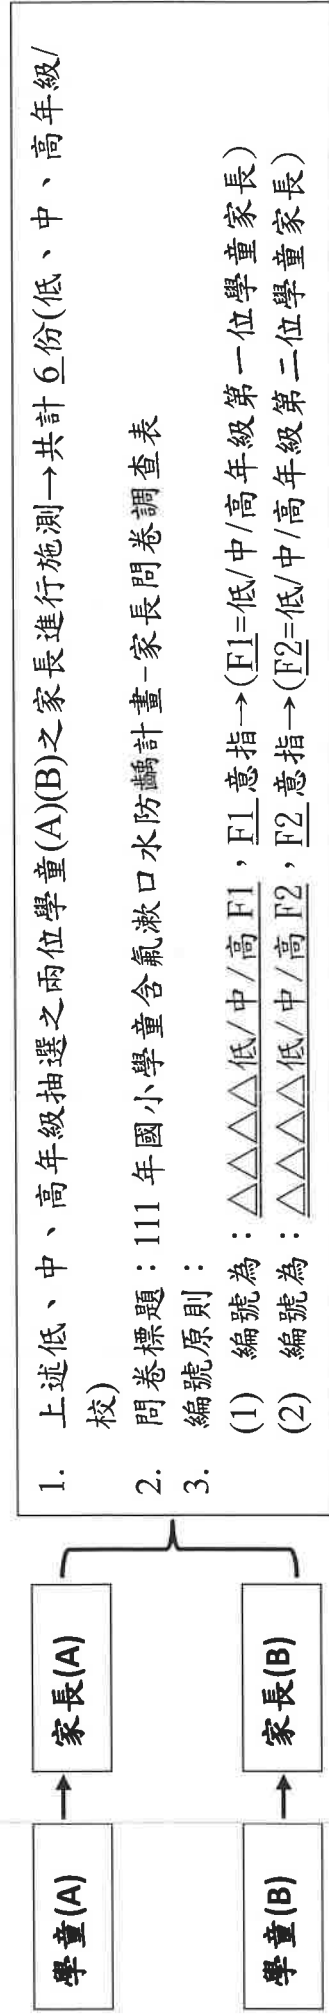 學童(A)
家長(A)
學童(B)
家長(B)
1. 上述低、中、高年級抽選之兩位學童(A)(B)之家長進行施測→共計 6 份(低、中、高年級/
校)
2. 問卷標題：111 年國小學童含氟漱口水防齲計畫-家長問卷調查表
3. 編號原則：
(1) 編號為：△△△△低/中/高 F1，F1 意指→(F1=低/中/高年級第一位學童家長)
(2) 編號為：△△△△低/中/高 F2，F2 意指→(F2=低/中/高年級第二位學童家長)